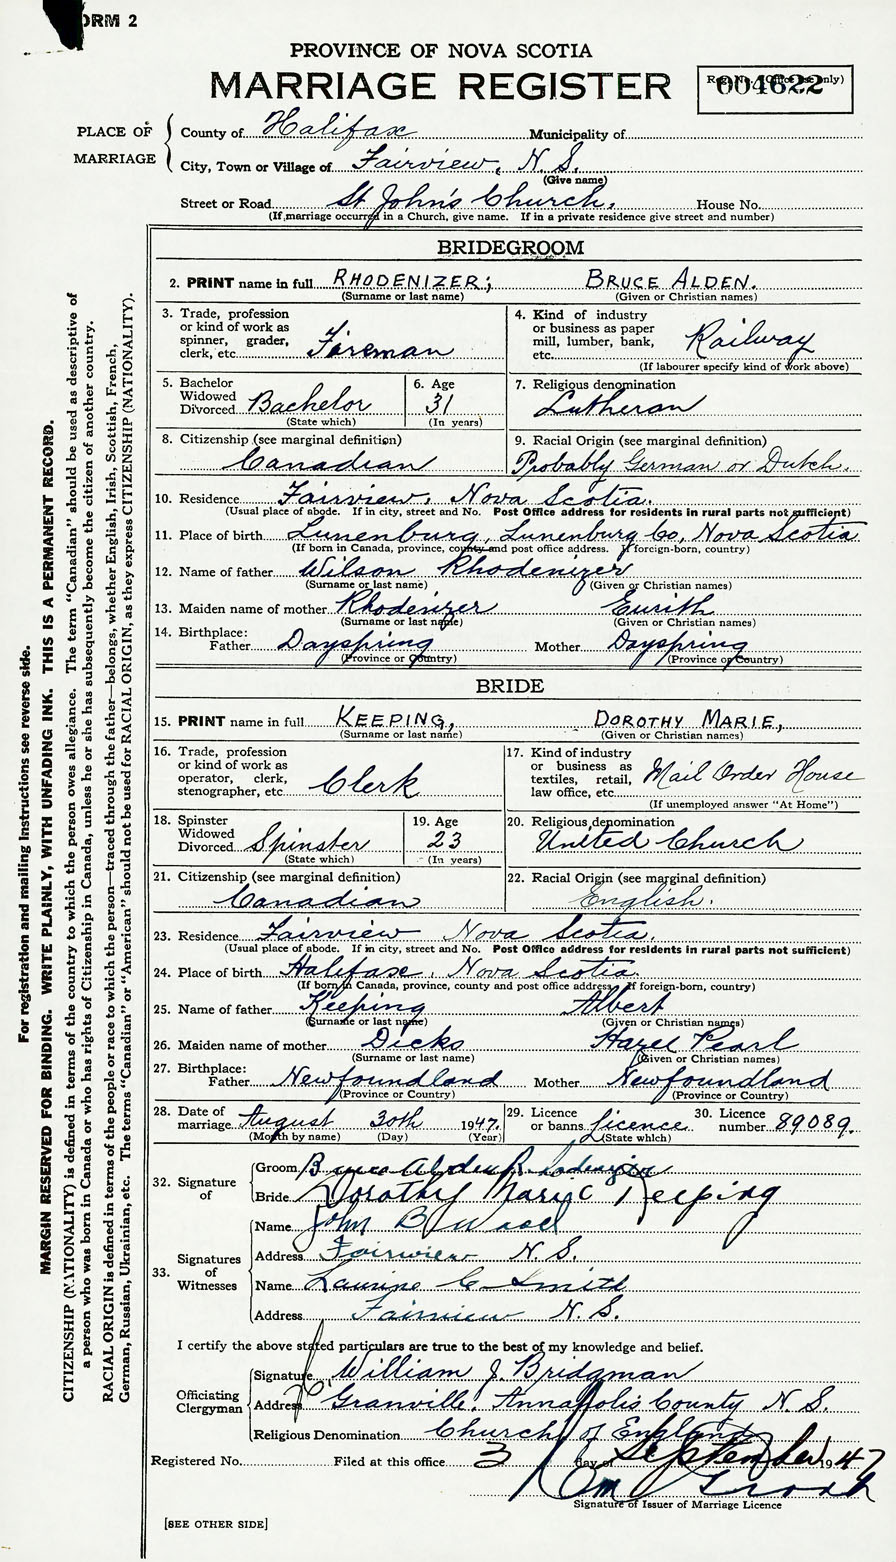 FORM 2
PROVINCE OF NOVA SCOTIA
MARRIAGE REGISTER
Reg. No. (Office use only)
004622
PLACE OF MARRIAGE
County of Halifax Municipality of
City, Town or Village of Fairview, N. S.
(Give name)
Street or Road St John's Church. House No.
(If marriage occurred in a Church, give name. If in a private residence give street and number)
BRIDEGROOM
2. PRINT name in full RHODENIZER; BRUCE ALDEN.
(Surname or last name) (Given or Christian names)
3. Trade, profession or kind of work as spinner, grader, clerk, etc. Fireman
4. Kind of industry or business as paper mill, lumber, bank, etc. Railway
(If labourer specify kind of work above)
5. Bachelor Widowed Divorced Bachelor
(State which)
6. Age 31
(In years)
7. Religious denomination Lutheran
8. Citizenship (see marginal definition) Canadian
9. Racial Origin (see marginal definition) Probably German or Dutch.
10. Residence Fairview, Nova Scotia.
(Usual place of abode. If in city, street and No. Post Office address for residents in rural parts not sufficient)
11. Place of birth Lunenburg, Lunenburg Co, Nova Scotia
(If born in Canada, province, county and post office address. If foreign-born, country)
12. Name of father Wilson Rhodenizer
(Surname or last name) (Given or Christian names)
13. Maiden name of mother Rhodenizer Eurith
(Surname or last name) (Given or Christian names)
14. Birthplace: Father Dayspring Mother Dayspring
(Province or Country) (Province or Country)
BRIDE
15. PRINT name in full KEEPING, DOROTHY MARIE,
(Surname or last name) (Given or Christian names)
16. Trade, profession or kind of work as operator, clerk, stenographer, etc Clerk
17. Kind of industry or business as textiles, retail, law office, etc. Mail Order House
(If unemployed answer "At Home")
18. Spinster Widowed Divorced Spinster
(State which)
19. Age 23
(In years)
20. Religious denomination United Church
21. Citizenship (see marginal definition) Canadian
22. Racial Origin (see marginal definition) English.
23. Residence Fairview Nova Scotia.
(Usual place of abode. If in city, street and No. Post Office address for residents in rural parts not sufficient)
24. Place of birth Halifax, Nova Scotia.
(If born in Canada, province, county and post office address. If foreign-born, country)
25. Name of father Keeping Albert
(Surname or last name) (Given or Christian names)
26. Maiden name of mother Dicks Hazel Pearl
(Surname or last name) (Given or Christian names)
27. Birthplace: Father Newfoundland Mother Newfoundland
(Province or Country) (Province or Country)
28. Date of marriage August 30th 1947.
(Month by name) (Day) (Year)
29. Licence or banns Licence
(State which)
30. Licence number 89089.
32. Signature of
Groom Bruce Alden Rhodenizer
Bride Dorothy Marie Keeping
33. Signatures of Witnesses
Name John B
Address Fairview N. S.
Name C Smith
Address Fairview N. S.
I certify the above stated particulars are true to the best of my knowledge and belief.
Officiating Clergyman
Signature William J. Bridgman
Address Granville, Annapolis County N. S.
Religious Denomination Church of England
Registered No. Filed at this office 3 day of September 1947
Signature of Issuer of Marriage Licence
[SEE OTHER SIDE]
For registration and mailing instructions see reverse side.
MARGIN RESERVED FOR BINDING. WRITE PLAINLY, WITH UNFADING INK. THIS IS A PERMANENT RECORD.
CITIZENSHIP (NATIONALITY) is defined in terms of the country to which the person owes allegiance. The term "Canadian" should be used as descriptive of
a person who was born in Canada or who has rights of Citizenship in Canada, unless he or she has subsequently become the citizen of another country.
RACIAL ORIGIN is defined in terms of the people or race to which the person—traced through the father—belongs, whether English, Irish, Scottish, French,
German, Russian, Ukrainian, etc. The terms "Canadian" or "American" should not be used for RACIAL ORIGIN, as they express CITIZENSHIP (NATIONALITY).